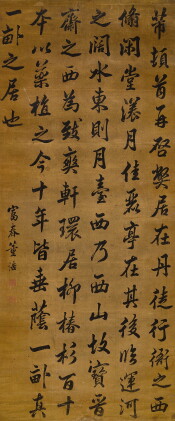 芾頓首再啓獘居在丹徒行衙之西
翛閑堂漾月佳麗亭在其後臨運河
之闊水東則月臺西乃西山故寶晉
齋之西為致爽軒環居柳椿杉百十
本以藥植之今十年皆垂蔭一畝真
一畝之居也
富春董誥